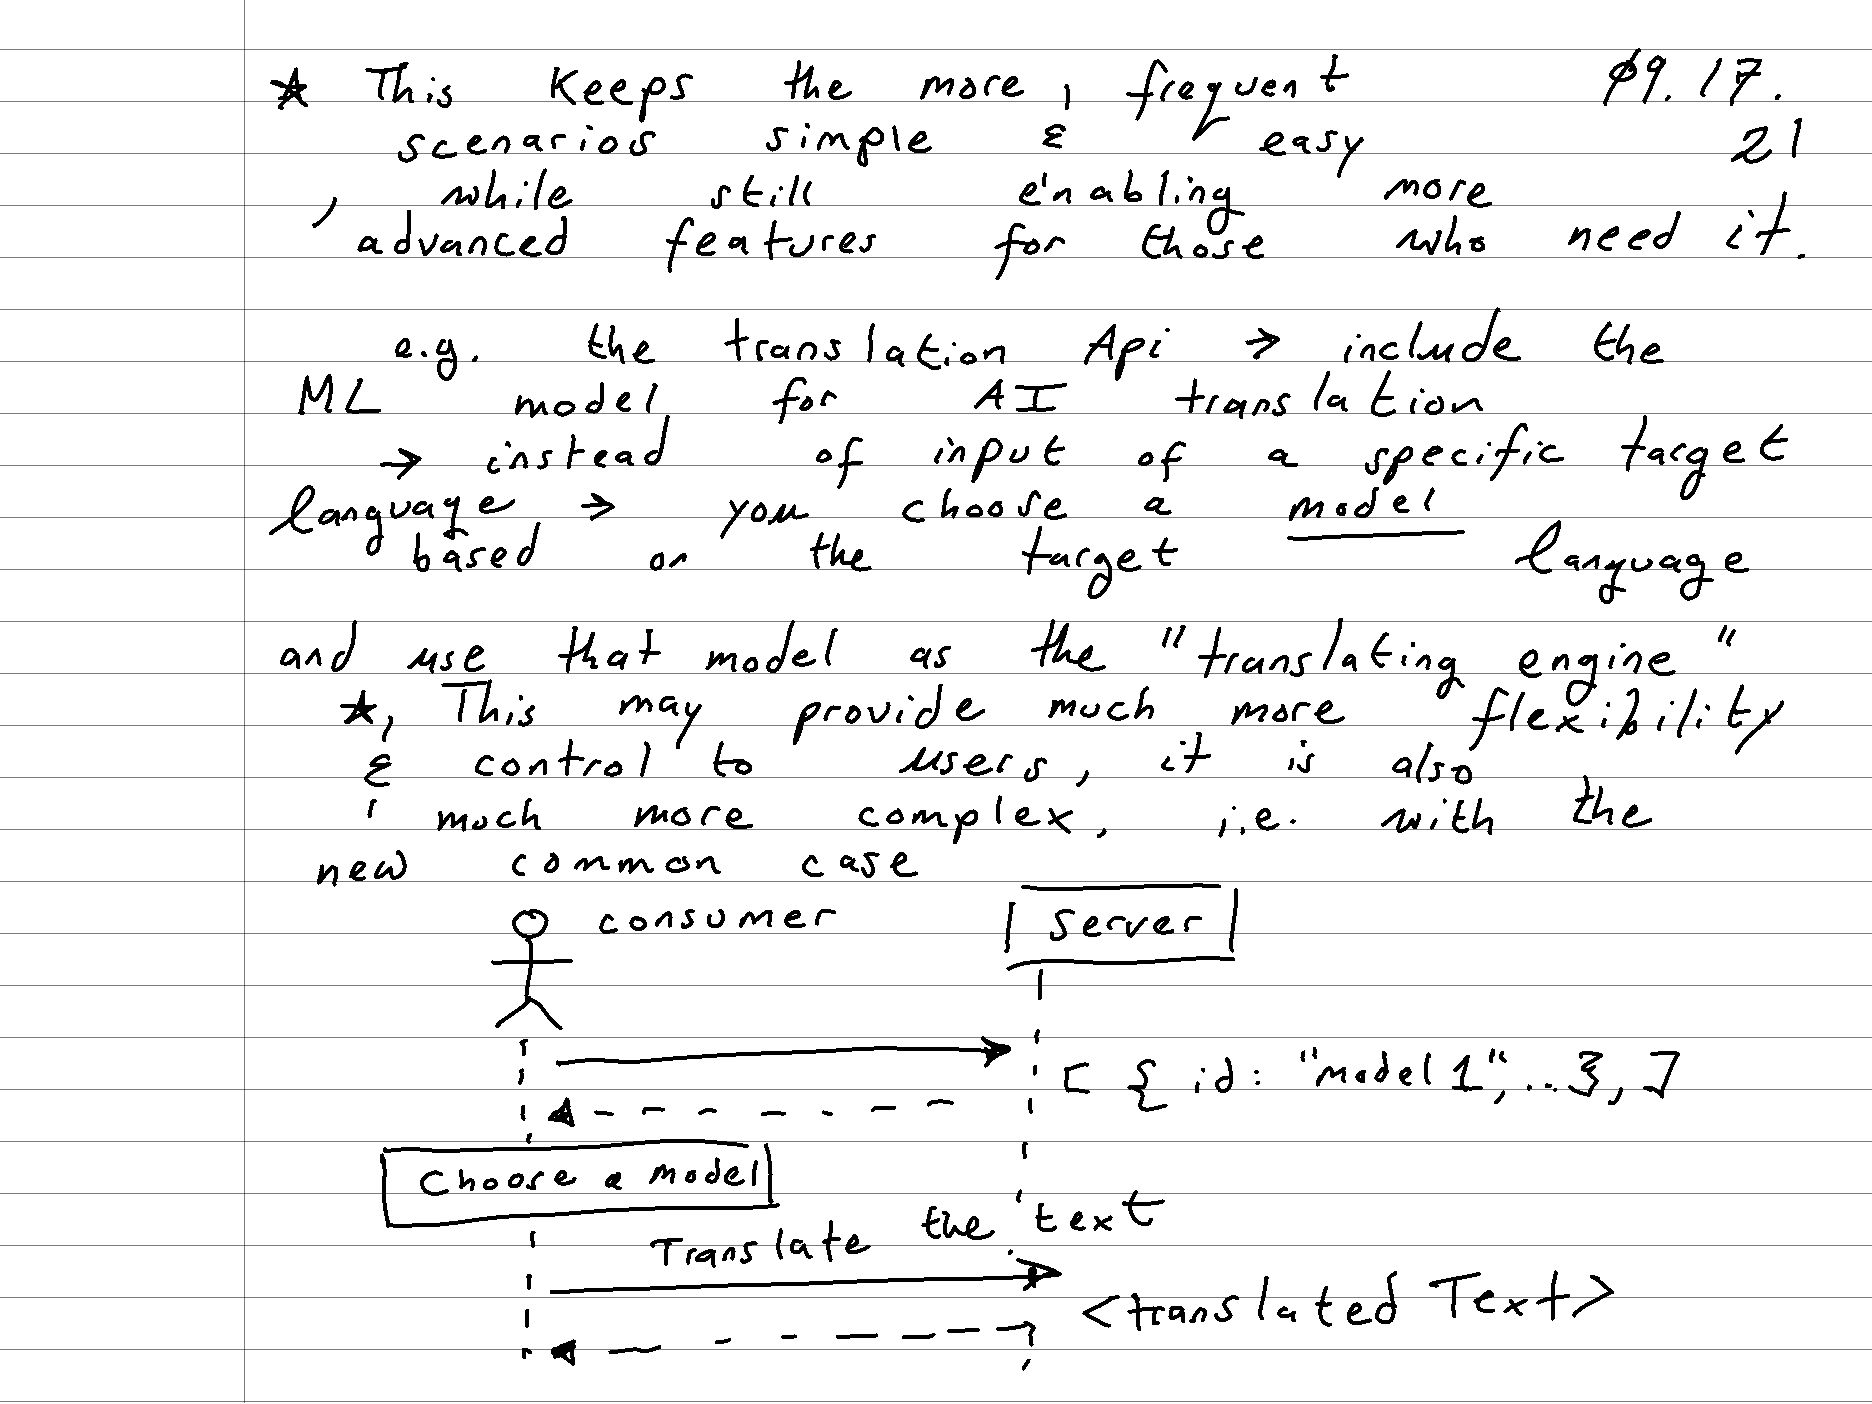 ★ This Keeps the more, frequent ø9.17.
scenarios simple & easy 21
, while still enabling more
advanced features for those who need it.
e.g. the translation Api → include the
ML model for AI translation
→ instead of input of a specific target
language → you choose a model
based on the target language
and use that model as the "translating engine"
★, This may provide much more flexibility
& control to users, it is also
much more complex, i.e. with the
new common case
consumer Server
[ { id: "model 1", .. }, ]
Choose a model
Translate the text
<translated Text>